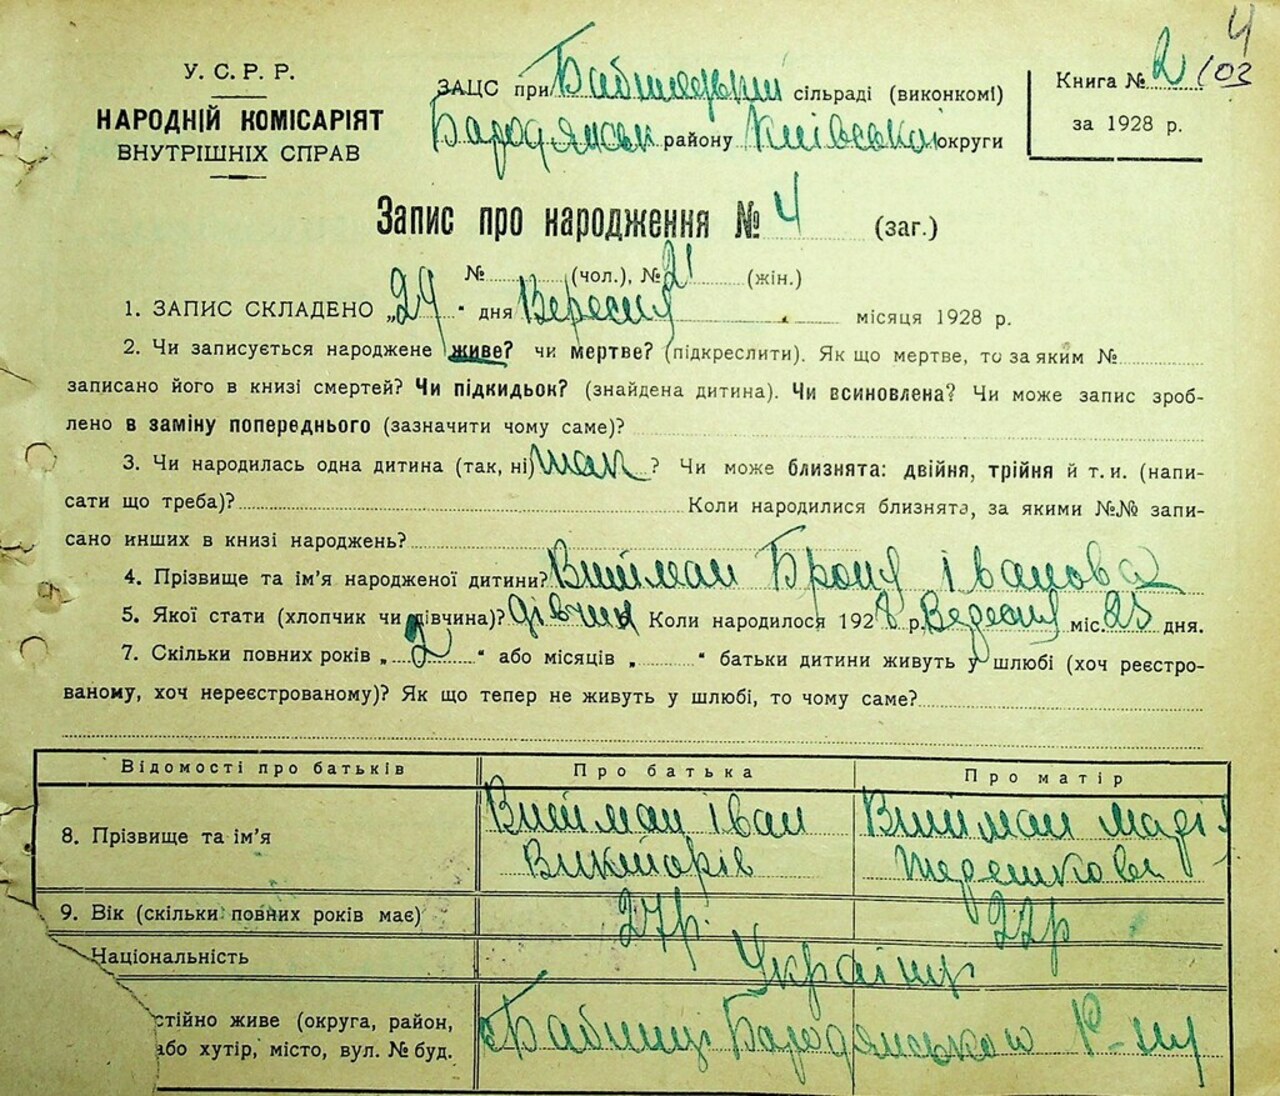 4
У. С. Р. Р.
НАРОДНІЙ КОМІСАРІЯТ
ВНУТРІШНІХ СПРАВ
ЗАЦС при сільраді (виконкомі)
Бародянськ району Київської округи
Книга № 2 103
за 1928 р.
Запис про народження № 4 (заг.)
№ (чол.), № 21 (жін.)
1. ЗАПИС СКЛАДЕНО „29" дня Вересня місяця 1928 р.
2. Чи записується народжене живе? чи мертве? (підкреслити). Як що мертве, то за яким №
записано його в книзі смертей? Чи підкидьок? (знайдена дитина). Чи всиновлена? Чи може запис зроб-
лено в заміну попереднього (зазначити чому саме)?
3. Чи народилась одна дитина (так, ні) так ? Чи може близнята: двійня, трійня й т. и. (напи-
сати що треба)? Коли народилися близнята, за якими №№ запи-
сано инших в книзі народжень?
4. Прізвище та ім'я народженої дитини? Вийман Броня Іванова
5. Якої стати (хлопчик чи дівчина)? дівчин Коли народилося 1928 р. Вересня міс. 25 дня.
7. Скільки повних років „ 2 " або місяців „ " батьки дитини живуть у шлюбі (хоч реєстро-
ваному, хоч нереєстрованому)? Як що тепер не живуть у шлюбі, то чому саме?
Відомості про батьків Про батька Про матір
8. Прізвище та ім'я Вийман Іван Вийман Марія
Викторів Терешкова
9. Вік (скільки повних років має) 27р. 22р
Національність Українц
стійно живе (округа, район, с Бабинці Бародянського Р-ну
або хутір, місто, вул. № буд.